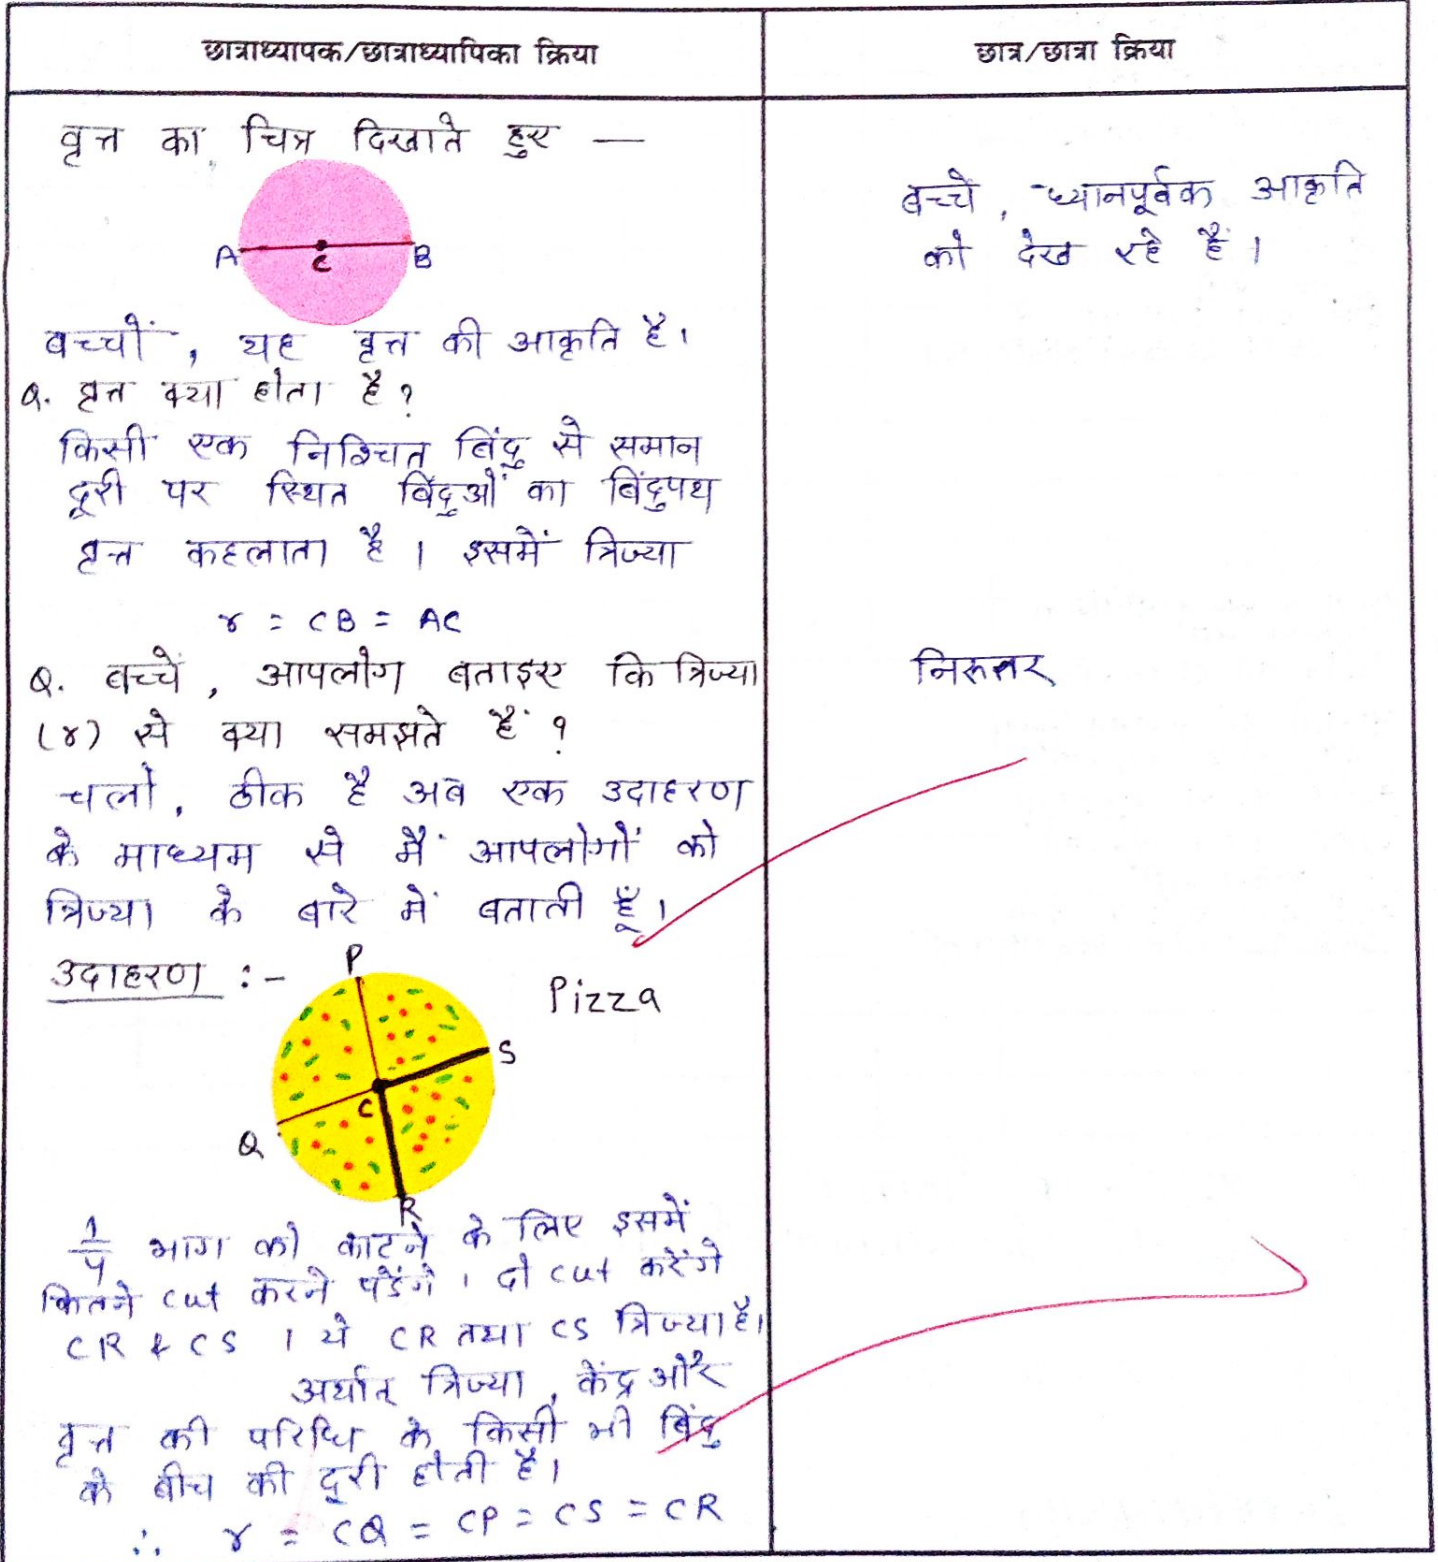 छात्राध्यापक/छात्राध्यापिका क्रिया
छात्र/छात्रा क्रिया
वृत्त का चित्र दिखाते हुए —
A C B
बच्चे, ध्यानपूर्वक आकृति
को देख रहे हैं।
बच्चों, यह वृत्त की आकृति है।
Q. वृत्त क्या होता है?
किसी एक निश्चित बिंदु से समान
दूरी पर स्थित बिंदुओं का बिंदुपथ
वृत्त कहलाता है। इसमें त्रिज्या
r = CB = AC
Q. बच्चें, आपलोग बताइए कि त्रिज्या
(r) से क्या समझते हैं?
निरुत्तर
चलो, ठीक है अब एक उदाहरण
के माध्यम से मैं आपलोगों को
त्रिज्या के बारे में बताती हूँ।
उदाहरण :-
Pizza
P
S
C
Q
R
1/4 भाग को काटने के लिए इसमें
कितने cut करने पड़ेंगे। दो cut करेंगे
CR & CS । ये CR तथा CS त्रिज्या है।
अर्थात् त्रिज्या, केंद्र और
वृत्त की परिधि के किसी भी बिंदु
के बीच की दूरी होती है।
∴ r = CQ = CP = CS = CR